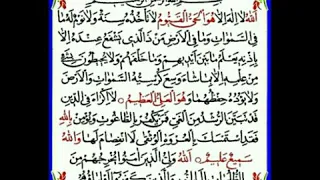 الله لا إله إلا هو الحي القيوم لا تأخذه سنة ولا نوم له ما
في السموات وما في الأرض من ذا الذي يشفع عنده إلا
بإذنه يعلم ما بين أيديهم وما خلفهم ولا يحيطون بشيء
من علمه إلا بما شاء وسع كرسيه السموات والأرض
ولا يؤده حفظهما وهو العلي العظيم لا إكراه في الدين
قد تبين الرشد من الغي فمن يكفر بالطاغوت ويؤمن بالله
فقد استمسك بالعروة الوثقى لا انفصام لها والله
سميع عليم الله ولي الذين آمنوا يخرجهم من